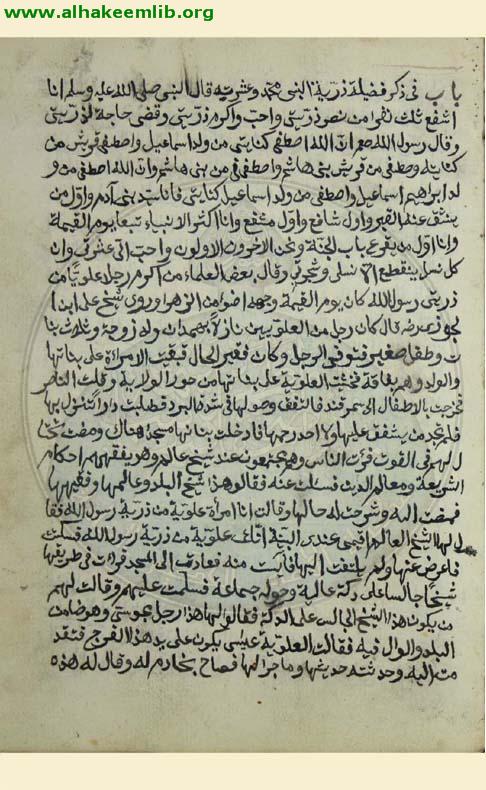 www.alhakeemlib.org
باب في ذكر فضيلة ذرية النبي محمد وعشرته قال النبي صلى الله عليه وسلم انا
اشفع ثلث نفرا من نصر ذريتي واحب واكرم ذريتي وقضى حاجة لذريتي
وقال رسول الله صلعم ان الله اصطفى كنانتي من ولد اسماعيل واصطفى قريش من
كنانته وصطفى من قريش بني هاشم واصطفى في من بني هاشم وان الله اصطفى من و
لد ابراهيم اسماعيل واصطفى من ولد اسماعيل كنانتي فانا سيد بني آدم واول من
ينشق عنه القبر واول شافع واول مشفع وانا اكثر الانبياء تبعا يوم القيمة
وانا اول من يقرع باب الجنة ونحن الاخرون الاولون واحب الي عشرتي وان
كل نسل ينقطع الا نسلي وشجرتي وقال بعض العلماء من اكرم رجلا علويا من
ذريتي رسول الله كان يوم القيمة وجهه اضوء من الزهرا وروى شيخ علي ابن ا
لجوزي رضه قال كان رجل من العلويين نازلا بهمدان وله زوجة وثلاث بنا
ت وطفل صغير فتوفى الرجل وكان فقير الحال فبقيت الامراة على بناتها
والولد وهم بفاقة فخشت العلوية على بناتها من جور الولاية وقلت الناصر
فخرجت بالاطفال الى سمرقند فاتفق وصولها في شدة البرد فطلبت دارا تنزل بها
فلم تجد من يشفق عليها ولا احد رحمها فادخلت بناتها مسجد هناك ومضت تحتا
ل لهم في القوت فرأت الناس وهم مجتمعون عند شيخ عالم وهو يفقههم احكام
الشريعة ومعالم الدين فسئلت عنه فقالو هذا شيخ البلد وعالمها وفقيهها
فمضت اليه وشرحت له حالها وقالت انا امرأة علوية من ذرية رسول الله فقا
ل لها الشيخ العالم اقيمي عندي البتة انك علوية من ذرية رسول الله فسكت
فاعرض عنها ولم يلتفت اليها فآيست منه فعادت الى المسجد فرات في طريقها
شيخا جالسا على دكة عالية وحوله جماعة فسلمت عليهم وقالت لهم
من يكون هذا الشيخ الجالس على الدكة فقالو لها هذا رجل مجوسي وهو ضامن
البلد والوال فيه فقالت العلوية عسى يكون على يد هذا الفرج فتقد
مت اليه وحدثته حديثها وما جرا لها فصاح بخادم له وقال له هذه